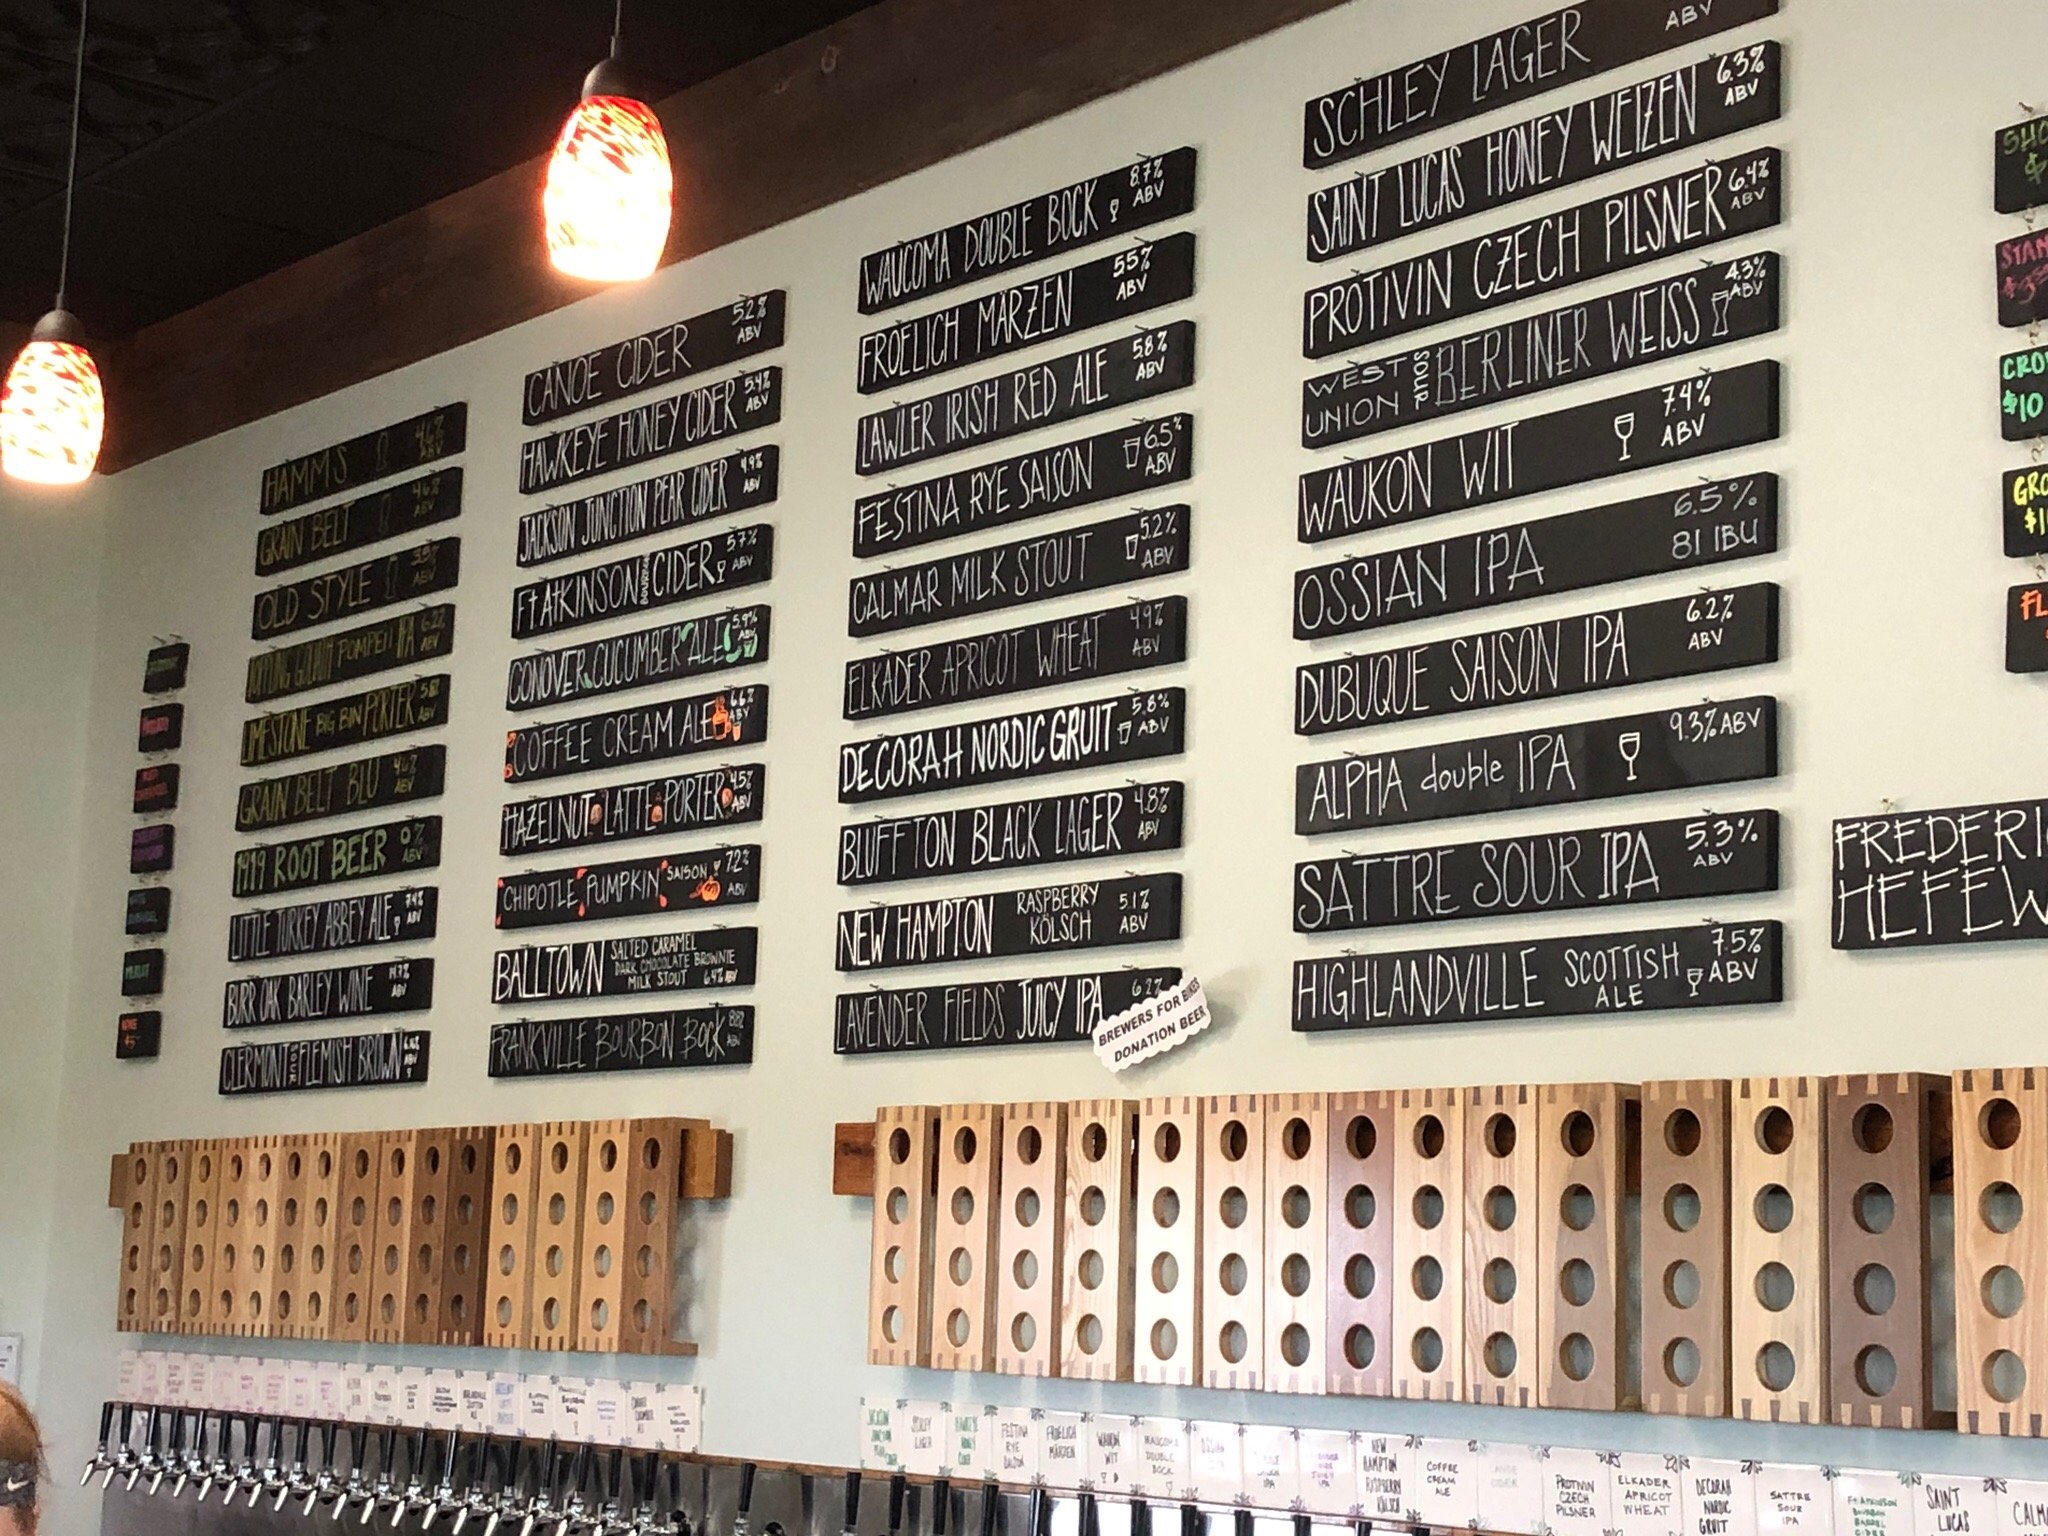 HAMMS 4.6% ABV
GRAIN BELT 4.6% ABV
OLD STYLE ABV
TOPPLING GOLIATH POMPEII IPA 6.2% ABV
LIMESTONE BIG BIN PORTER 5.8% ABV
GRAIN BELT BLU 4.6% ABV
1919 ROOT BEER 0% ABV
LITTLE TURKEY ABBEY ALE 7.4% ABV
BURR OAK BARLEY WINE ABV
CLERMONT SOUR FLEMISH BROWN ABV
CANOE CIDER 5.2% ABV
HAWKEYE HONEY CIDER 5.4% ABV
JACKSON JUNCTION PEAR CIDER 4.9% ABV
Ft ATKINSON CIDER 5.7% ABV
CONOVER CUCUMBER ALE 5.9% ABV
COFFEE CREAM ALE 6.6% ABV
HAZELNUT LATTE PORTER 4.5% ABV
CHIPOTLE PUMPKIN SAISON 7.2 ABV
BALLTOWN SALTED CARAMEL
DARK CHOCOLATE BROWNIE
MILK STOUT 6.4% ABV
FRANKVILLE BOURBON BOCK ABV
WAUCOMA DOUBLE BOCK 8.7% ABV
FROELICH MÄRZEN 5.5% ABV
LAWLER IRISH RED ALE 5.8% ABV
FESTINA RYE SAISON 6.5% ABV
CALMAR MILK STOUT 5.2% ABV
ELKADER APRICOT WHEAT 4.9% ABV
DECORAH NORDIC GRUIT 5.8% ABV
BLUFFTON BLACK LAGER 4.8% ABV
NEW HAMPTON RASPBERRY KÖLSCH 5.1% ABV
LAVENDER FIELDS JUICY IPA 6.2%
BREWERS FOR BIKES
DONATION BEER
SCHLEY LAGER ABV
SAINT LUCAS HONEY WEIZEN 6.3% ABV
PROTIVIN CZECH PILSNER 6.4% ABV
WEST UNION SOUR BERLINER WEISS 4.3% ABV
WAUKON WIT 7.4% ABV
OSSIAN IPA 6.5% 81 IBU
DUBUQUE SAISON IPA 6.2% ABV
ALPHA double IPA 9.3% ABV
SATTRE SOUR IPA 5.3% ABV
HIGHLANDVILLE SCOTTISH ALE 7.5% ABV
FREDERI
HEFEW
SHO
$
STAN
$3
CRO
$10
GRO
$1
FL
JACKSON JUNCTION PEAR
SCHLEY LAGER
HAWKEYE HONEY CIDER
FESTINA RYE SAISON
FROELICH MÄRZEN
WAUKON WIT
WAUCOMA DOUBLE BOCK
NEW HAMPTON RASPBERRY KÖLSCH
COFFEE CREAM ALE
CANOE CIDER
PROTIVIN CZECH PILSNER
ELKADER APRICOT WHEAT
DECORAH NORDIC GRUIT
SATTRE SOUR IPA
Ft ATKINSON BOURBON BARREL
SAINT LUCAS
CALM